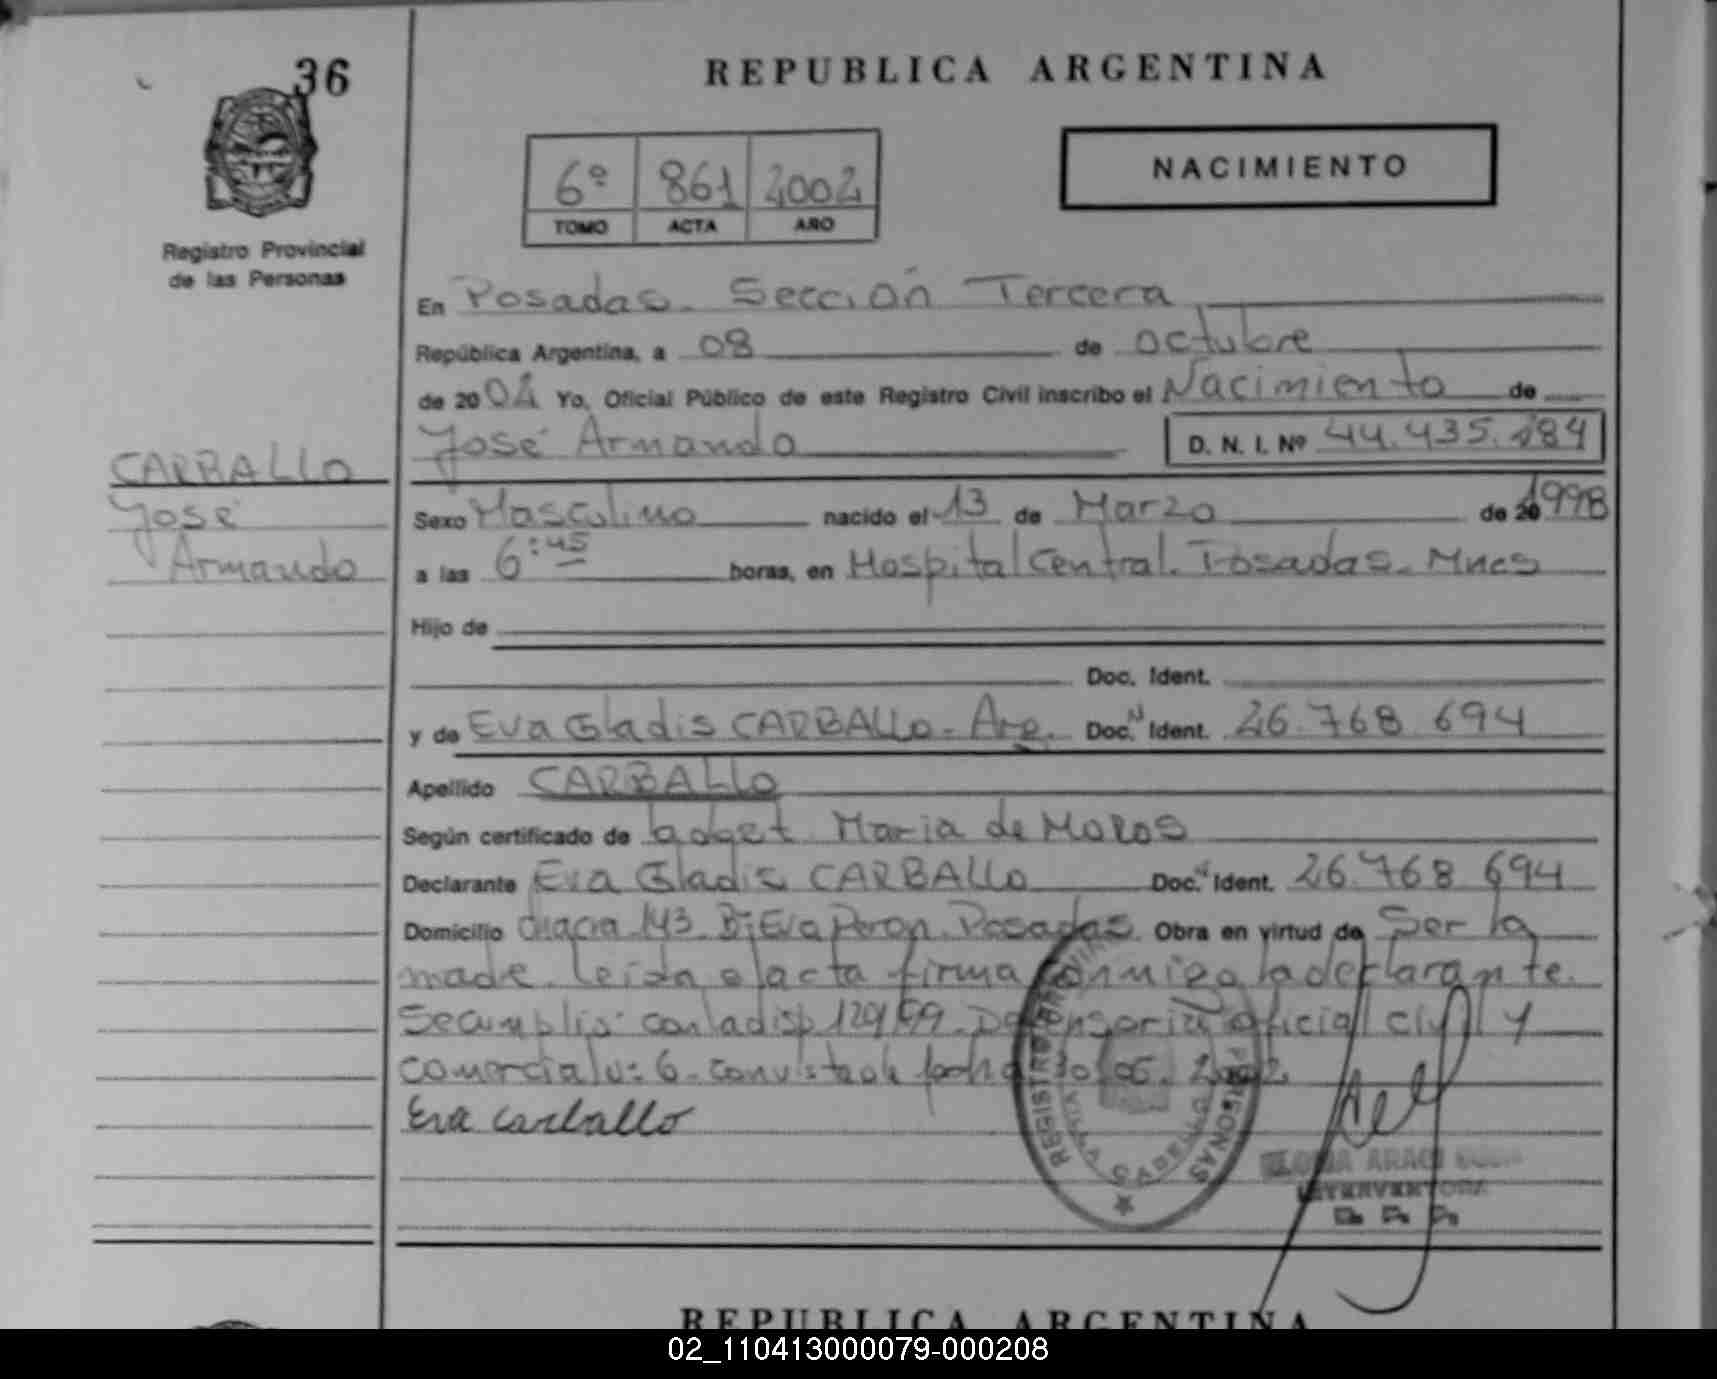 36
REPUBLICA ARGENTINA
6º 861 2002
TOMO ACTA AÑO
NACIMIENTO
Registro Provincial
de las Personas
En Posadas. Sección Tercera
República Argentina, a 08 de octubre
de 2002 Yo, Oficial Público de este Registro Civil inscribo el Nacimiento de
José Armando D. N. I. Nº 44.435.184
CARBALLO
José
Armando
Sexo Masculino nacido el 13 de Marzo de 20 1998
a las 6:45 horas, en Hospital Central. Posadas. Mnes
Hijo de
Doc. Ident.
y de Eva Gladis CARBALLO - Arg. Doc. N Ident. 26.768.694
Apellido CARBALLO
Según certificado de Maria de MOROS
Declarante Eva Gladis CARBALLO Doc. N Ident. 26.768.694
Domicilio chacra 143. Bº Eva Peron. Posadas. Obra en virtud de Ser la
madre. leida el acta firma conmigo la declarante.
Se cumplio con la disp 129/99. Defensoria oficial civil y
comercial Nº 6. con vista de fecha 30.05.2002
Eva carballo
REGISTRO PROVINCIAL PERSONAS
VILLA CABELLO
INTERVENTORA
REPUBLICA ARGENTINA
02_110413000079-000208